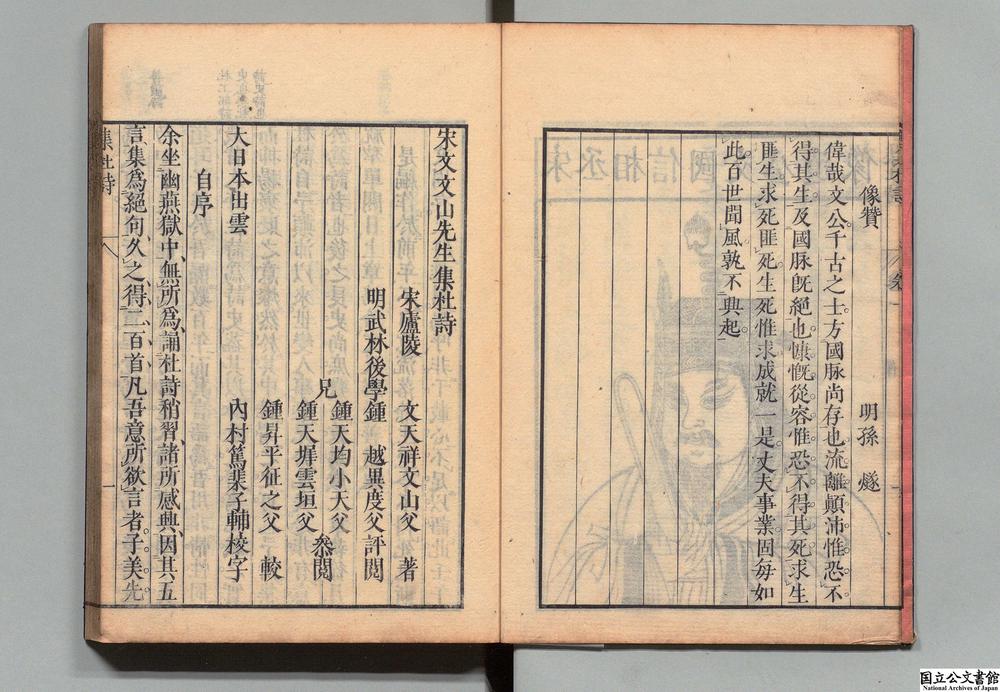 像贊
明孫 燧
偉哉文公千古之士方國脉尚存也流離顛沛惟恐不
得其生及國脉既絕也慷慨從容惟恐不得其死求生
匪生求死匪死生死惟求成就一是丈夫事業固毋如
此百世聞風孰不興起
宋文文山先生集杜詩
宋廬陵 文天祥文山父 著
明武林後學鍾 越異度父評閱
兄
鍾天均小天父
鍾天墀雲垣父 叅閱
鍾昇平征之父 較
大日本出雲 內村篤棐子輔校字
自序
余坐幽燕獄中無所爲誦杜詩稍習諸所感興因其五
言集爲絕句久之得二百首凡吾意所欲言者子美先
集杜詩
一
国立公文書館
National Archives of Japan